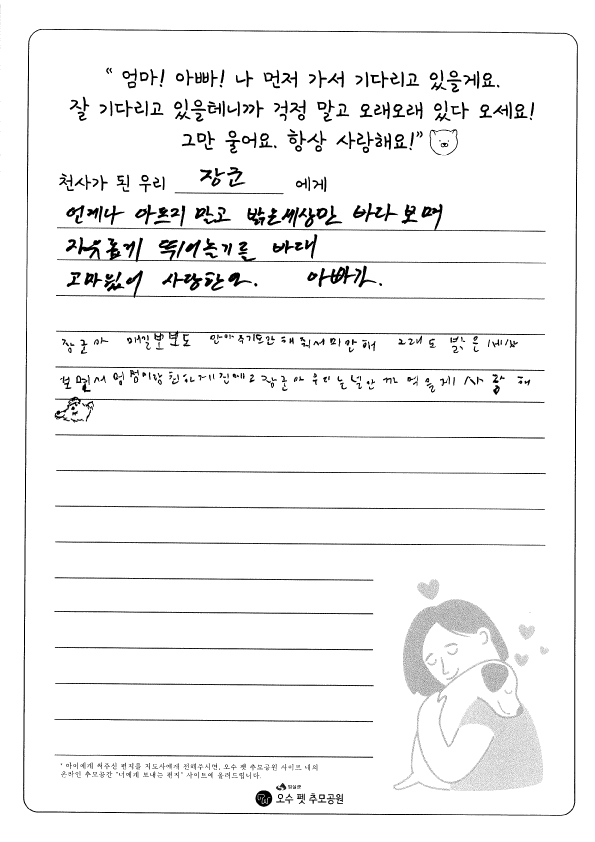 “ 엄마! 아빠! 나 먼저 가서 기다리고 있을게요.
잘 기다리고 있을테니까 걱정 말고 오래오래 있다 오세요!
그만 울어요. 항상 사랑해요!”
천사가 된 우리 장군 에게
언제나 아프지 말고 밝은세상만 바라보며
자유롭게 뛰어놀기를 바래
고마웠어 사랑한다. 아빠가.
장군아 매일 뽀뽀도 안아주기도안해줘서미안해 그래도 밝은
사랑해
* 아이에게 써주신 편지를 지도사에게 전해주시면, 오수 펫 추모공원 사이트 내의
온라인 추모공간 "너에게 보내는 편지" 사이트에 올려드립니다.
임실군
오수 펫 추모공원